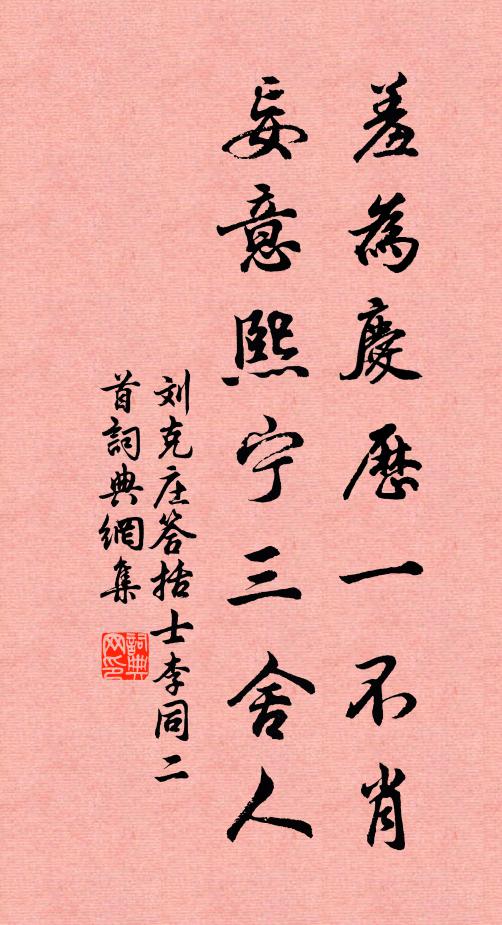 羞為慶歷一不肖
妄意熙宁三舍人
刘克庄答括士李同二
首詞典網集
詞典网印